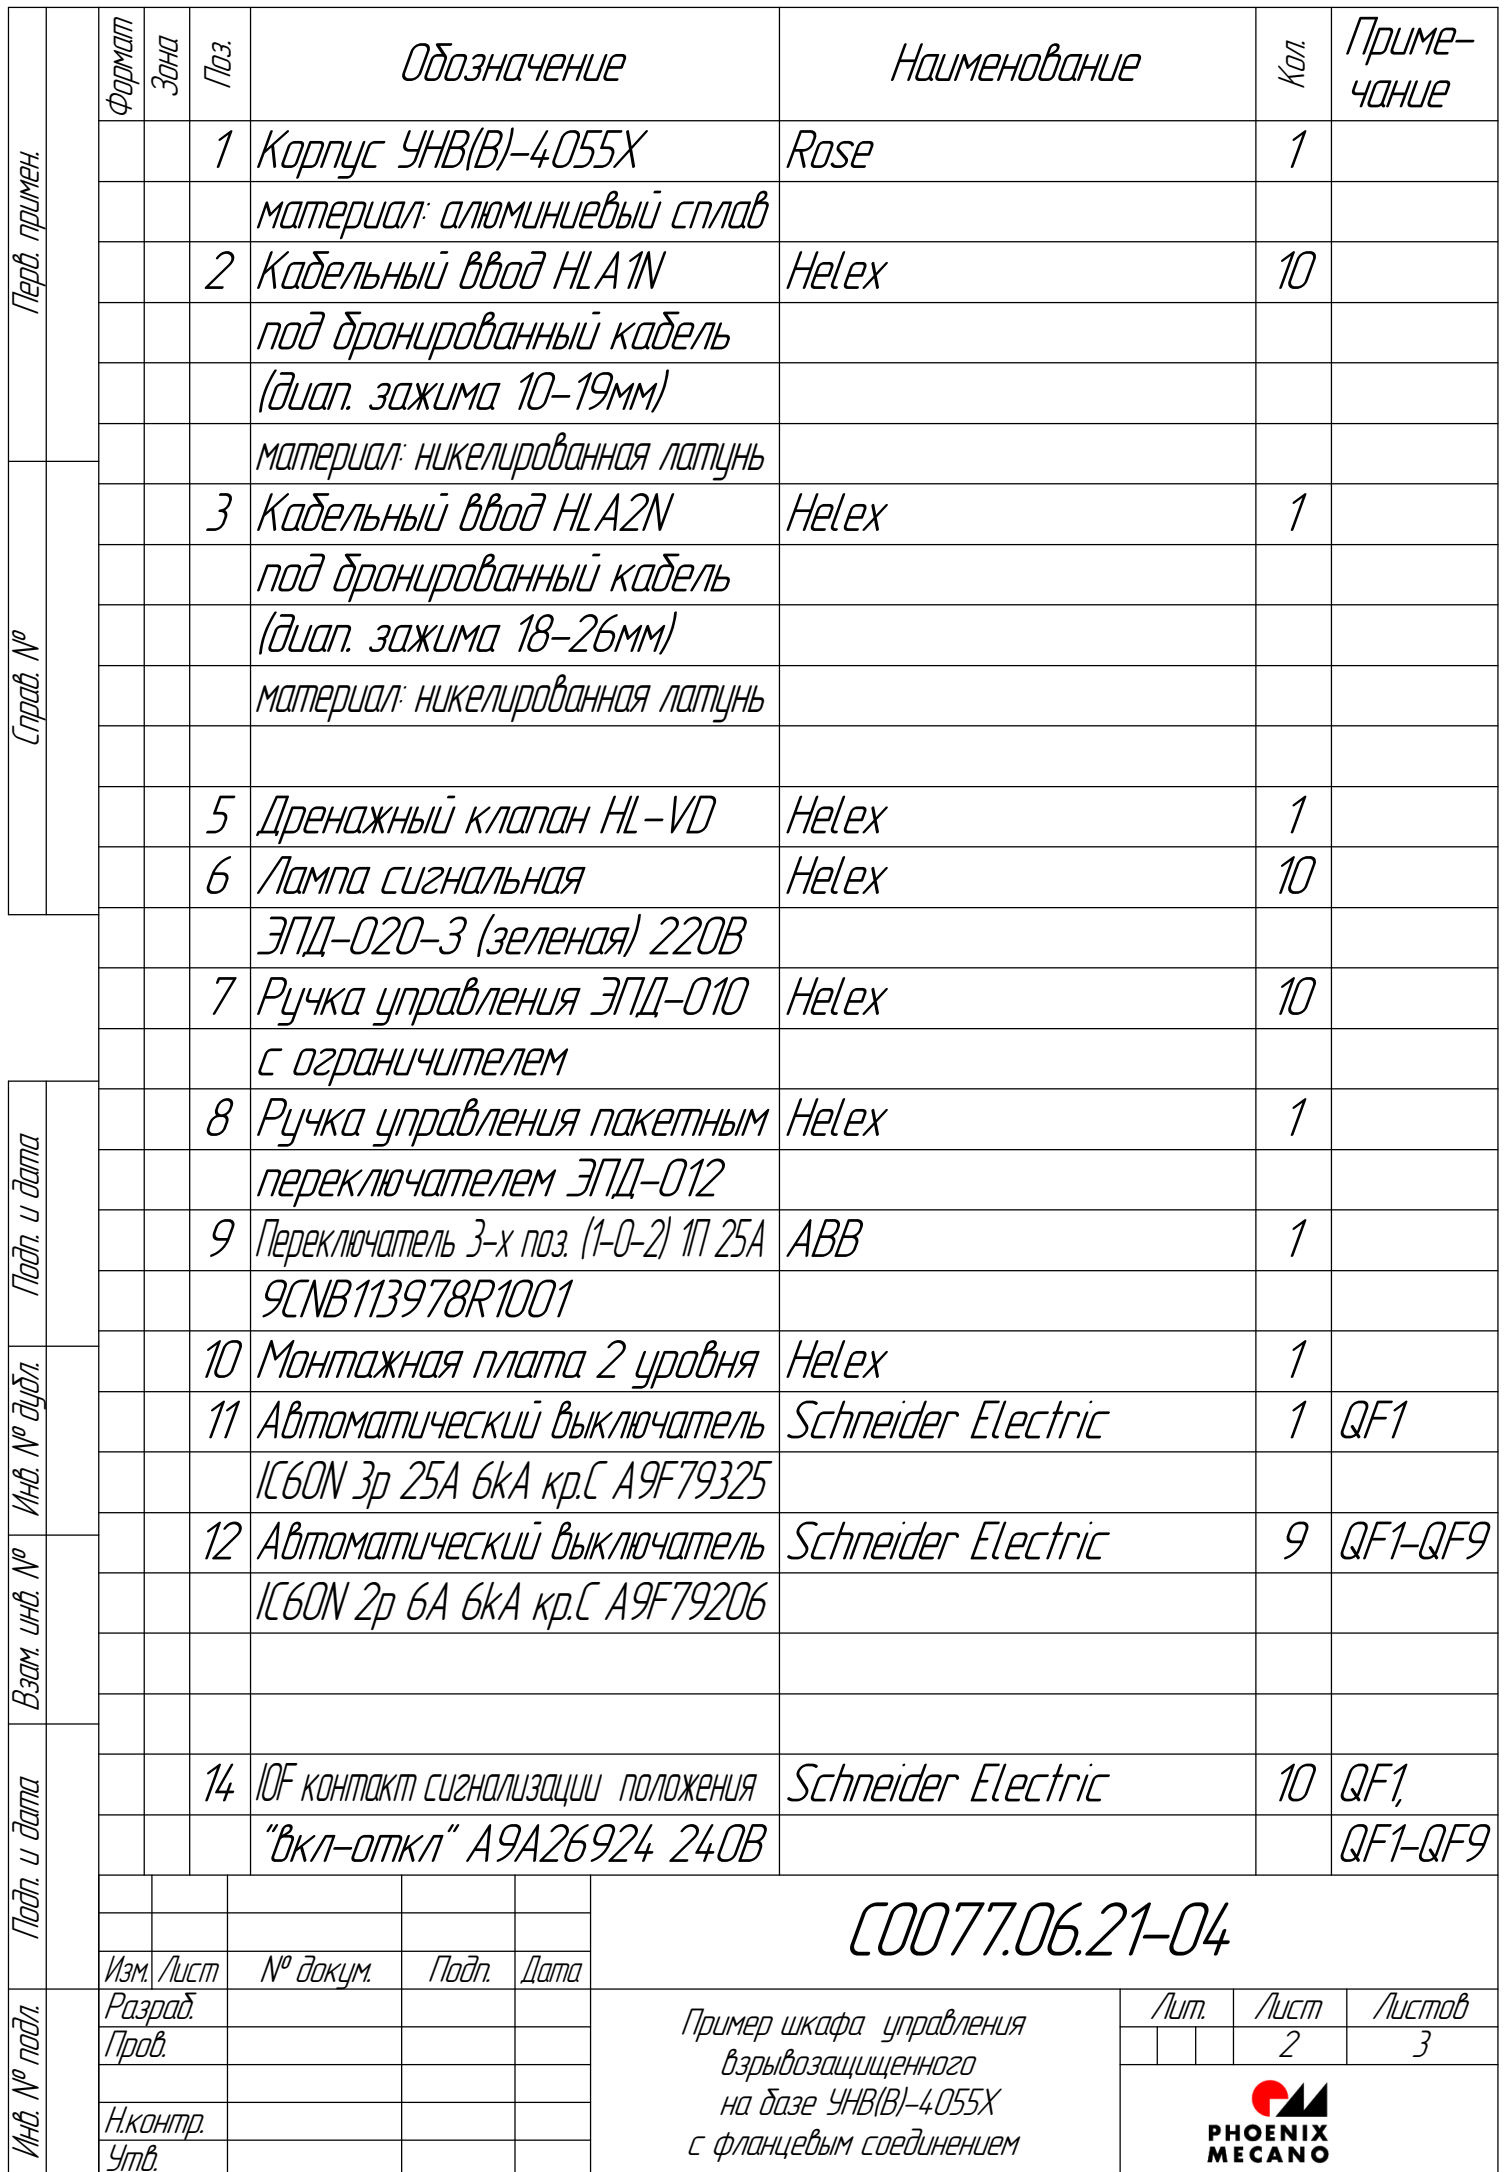 Формат Зона Поз. Обозначение Наименование Кол. Приме-
чание
1 Корпус УНВ(В)-4055Х Rose 1
материал: алюминиевый сплав
2 Кабельный ввод HLA1N Helex 10
под бронированный кабель
(диап. зажима 10-19мм)
материал: никелированная латунь
3 Кабельный ввод HLA2N Helex 1
под бронированный кабель
(диап. зажима 18-26мм)
материал: никелированная латунь
5 Дренажный клапан HL-VD Helex 1
6 Лампа сигнальная Helex 10
ЭПД-020-3 (зеленая) 220В
7 Ручка управления ЭПД-010 Helex 10
с ограничителем
8 Ручка управления пакетным Helex 1
переключателем ЭПД-012
9 Переключатель 3-х поз. (1-0-2) 1П 25А ABB 1
9CNB113978R1001
10 Монтажная плата 2 уровня Helex 1
11 Автоматический выключатель Schneider Electric 1 QF1
IC60N 3p 25A 6kA кр.С A9F79325
12 Автоматический выключатель Schneider Electric 9 QF1-QF9
IC60N 2p 6A 6kA кр.С A9F79206
14 IOF контакт сигнализации положения Schneider Electric 10 QF1,
"вкл-откл" A9A26924 240В QF1-QF9
Перв. примен.
Справ. №
Подп. и дата
Инв. № дубл.
Взам. инв. №
Подп. и дата
Инв. № подл.
С0077.06.21-04
Изм. Лист № докум. Подп. Дата
Разраб.
Пров.
Н.контр.
Утв.
Пример шкафа управления
взрывозащищенного
на базе УНВ(В)-4055Х
с фланцевым соединением
Лит. Лист Листов
2 3
PHOENIX
MECANO